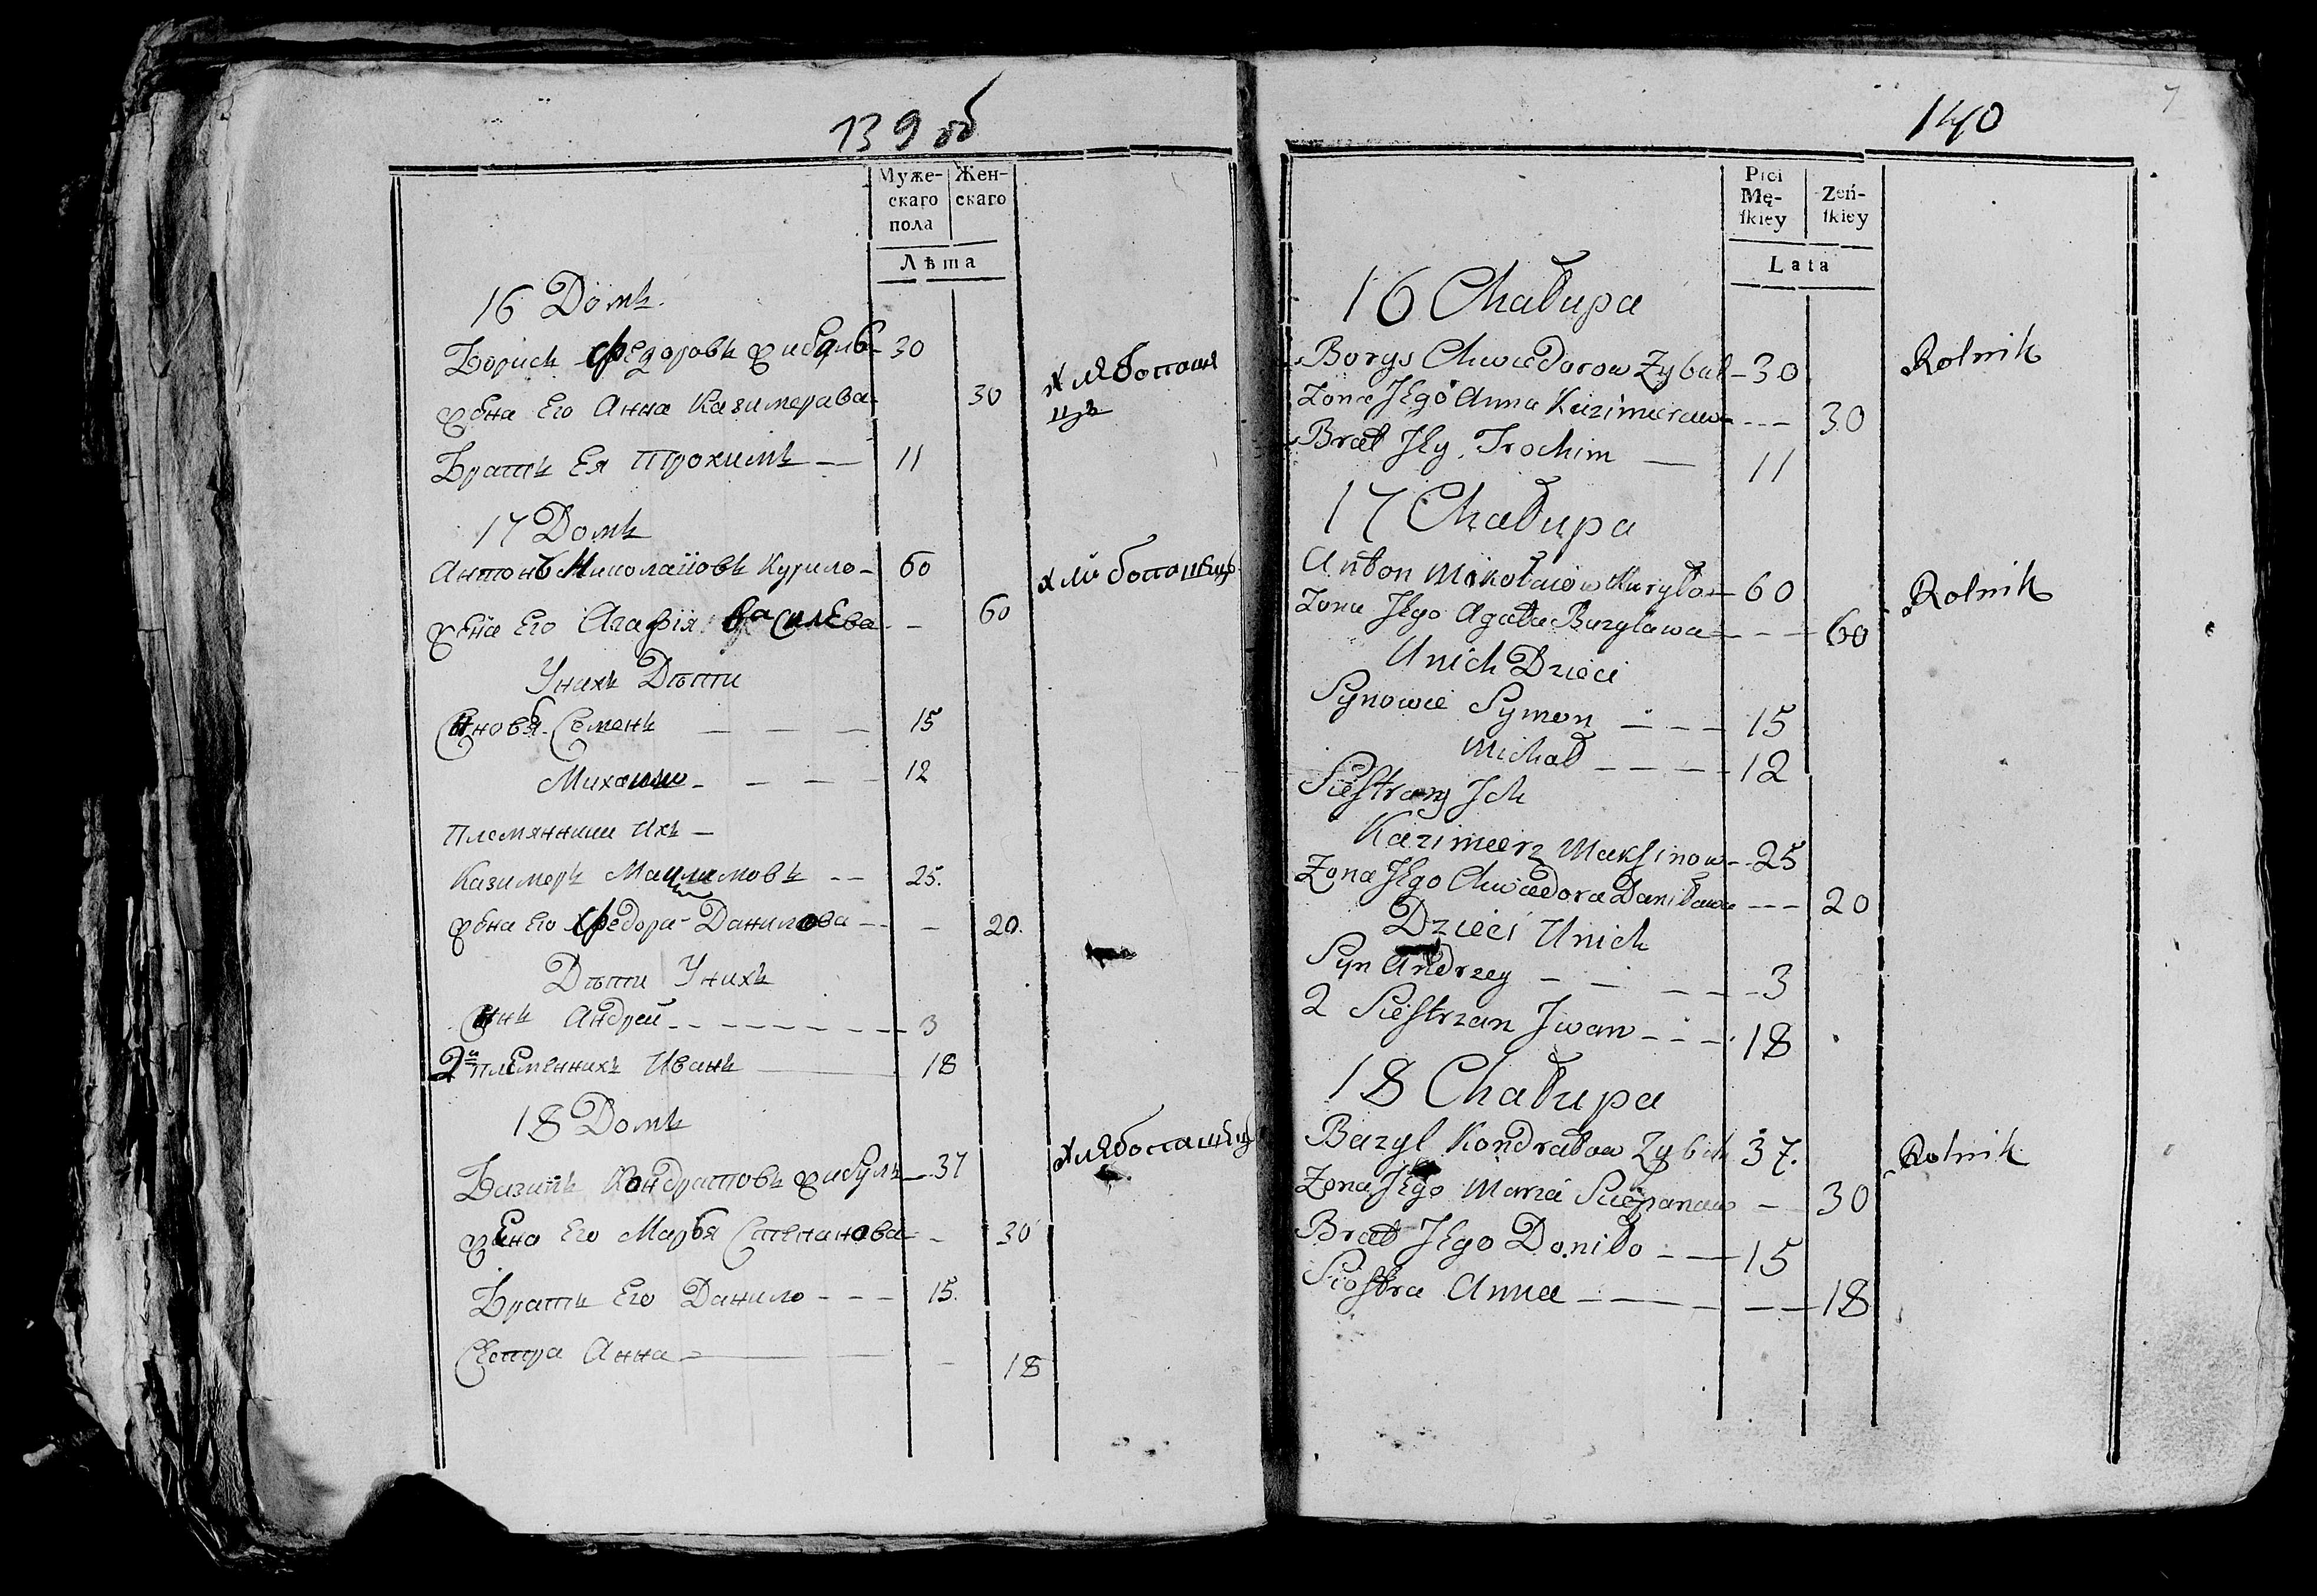 139 об
Муже-
скаго
пола
Жен-
скаго
Лѣта
16 Домъ.
Борисъ Федоровъ Жибуль 30
Жена Его Анна Казимерава 30
Хлябопаше
цъ
Братъ Ея Трохимъ — 11
17 Домъ
Антонъ Николаiовъ Курило - 60
Хлебопашецъ
Жена Его Агафiя Василева - 60
Унихъ Дѣти
Сыновья Семенъ — — — 15
Михаило - — — — 12
Племянники Ихъ —
Казимеръ Максимовъ — 25.
Жена Его Федора Данилова — - 20.
Дѣти Унихъ
Сынъ Андрей - - - - - - - 3
2й племенникъ Иванъ — 18
18 Домъ
Хлябопашецъ
Базиль Кондратовъ Жибуль — 37
Жена Его Марья Степанова - 30
Братъ Его Данило - - - 15.
Сестра Анна — — - 18
140
7
Płci
Mę-
ſkiey
Żeń-
ſkiey
Lata
16 Chałupa
Borys Chwiedorow Zybul - 30
Rolnik
Zona Jego Anna Kazimierawa - - - 30
Brat Jey Trochim — 11
17 Chałupa
Anton Mikołaiow Kuryło — 60
Rolnik
Zona Jego Agata Bazylawa - - - 60
Unich Dzieci
Synowie Symon - - - 15
Michał - - - - 12
Sieſtrany Ich
Kazimierz Makſimow - - 25
Zona Jego Chwiedora Daniława - - - 20
Dzieci Unich
Syn Andrzey - - - - 3
2 Sieſtrzan Jwan - - - 18
18 Chałupa
Bazyl Kondratow Zybul 37.
Rolnik
Zona Jego Maria Sciepanawa — 30
Brat Jego Daniło - - — 15
Sioſtra Anna — — — — 18